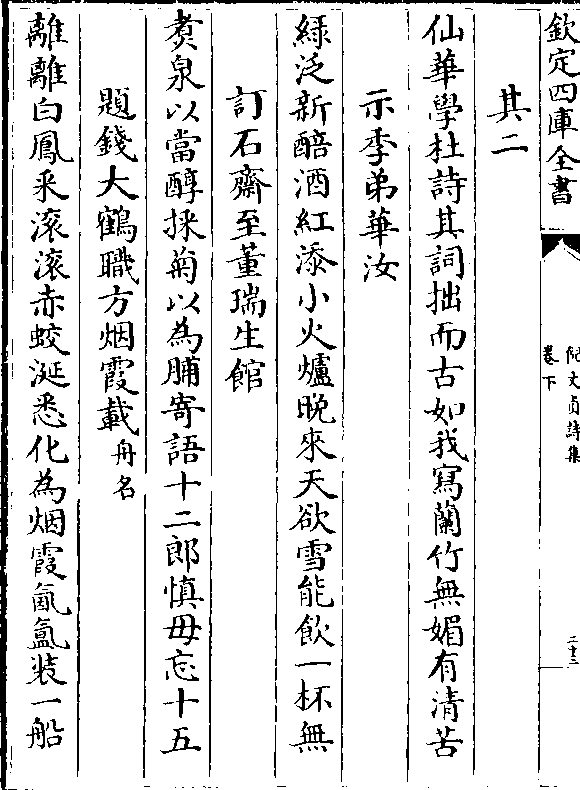 欽定四庫全書
倪文貞詩集
卷下
二十三
其二
仙華學杜詩其詞拙而古如我寫蘭竹無媚有清苦
示季弟華汝
緑泛新醅酒紅添小火爐晚來天欲雪能飲一杯無
訂石齋至董瑞生館
煑泉以當醇採菊以為脯寄語十二郎慎毋忘十五
題錢大鶴職方烟霞載舟名
離離白鳳釆滚滚赤蛟涎悉化為烟霞氤氲裝一船